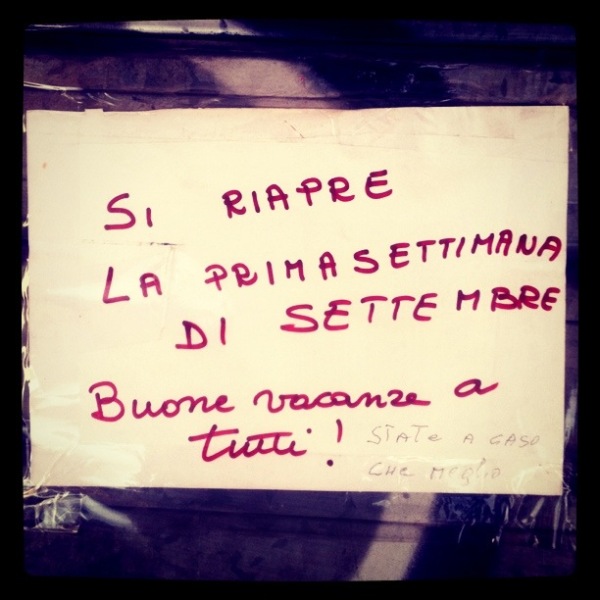 SI RIAPRE
LA PRIMA SETTIMANA
DI SETTEMBRE
Buone vacanze a
tutti!
STATE A CASO
CHE MEGLIO